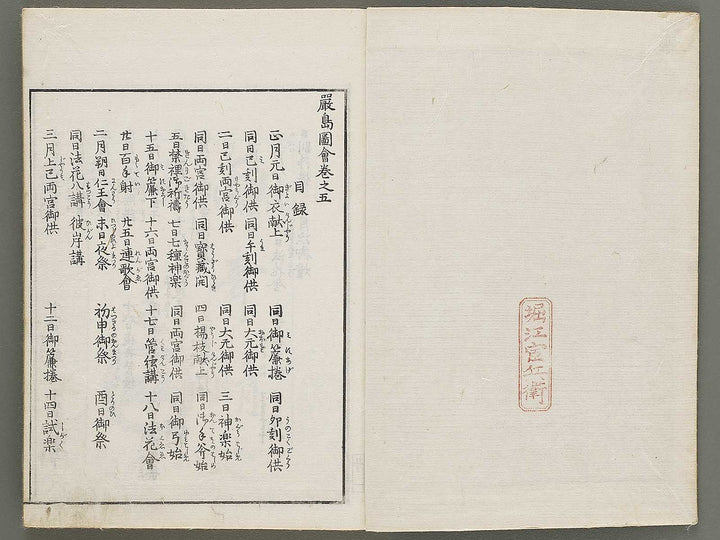 堀江宦仁衛
嚴島圖會巻之五
目録
正月元日御衣献上 同日御簾捲 同日卯刻御供
同日巳刻御供 同日午刻御供 同日大元御供
二日巳刻両宮御供 同日大元御供 三日神楽始
同日両宮御供 同日寳藏開 四日楊枝献上 同日御手斧始
五日禁裡御祈禱 七日七種神楽 同日両宮御供 同日御弓始
十五日御簾下 十六日両宮御供 十七日管絃講 十八日法花會
廿日百手射 廿五日連歌會
二月朔日仁王會 未日夜祭 初申御祭 酉日御祭
同日法花八講 彼岸講
三月上巳両宮御供 十二日御簾捲 十四日試楽